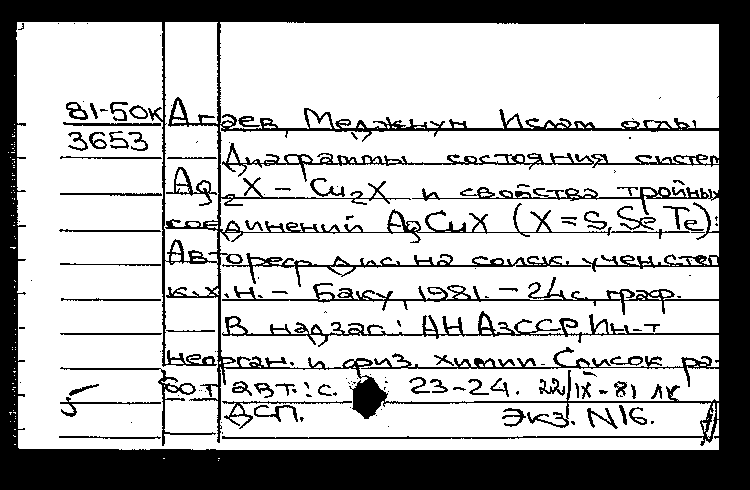 81-50к Агаев, Меджнун Ислам оглы
3653
Диаграммы состояния систем
Ag2X – Cu2X и свойства тройных
соединений AgCuX (X=S, Se, Te):
Автореф. дис. на соиск. учен. степ
к.х.н. – Баку, 1981. – 24с, граф.
В надзаг.: АН АзССР, Ин-т
неорган. и физ. химии. Список ра-
бот авт.: с. 23-24. 22/IX-81 лк
ДСП. Экз. N16.